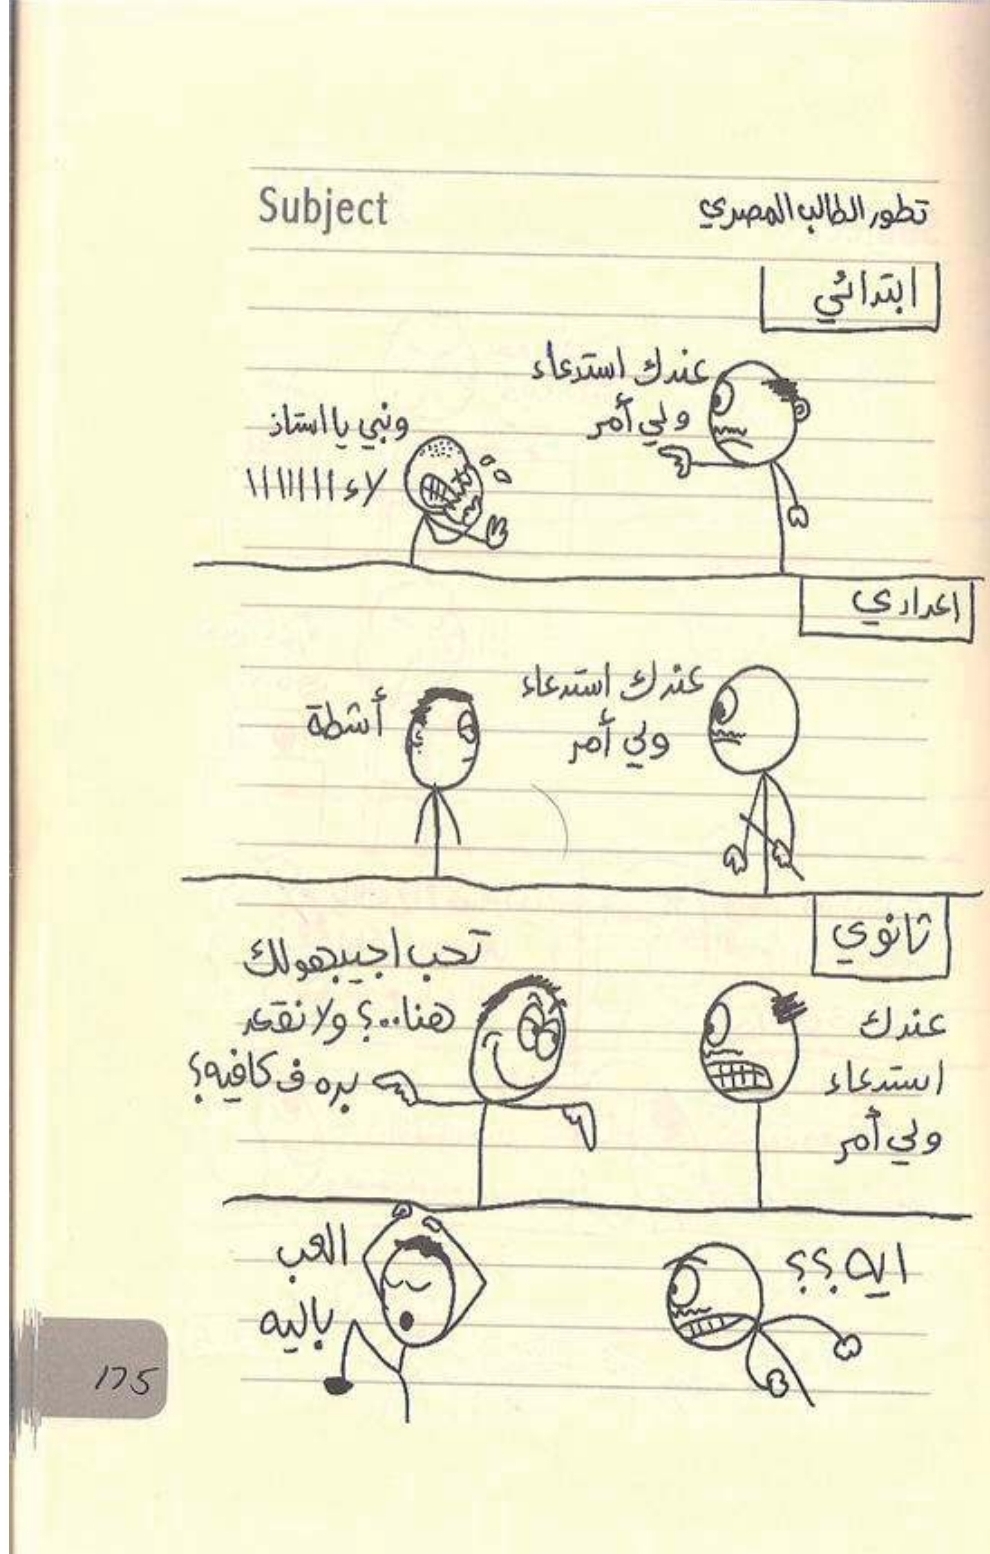 Subject
تطور الطالب المصري
ابتدائي
عندك استدعاء
ولي أمر
ونبي يا استاذ
لاء اااااااا
اعدادي
عندك استدعاء
ولي أمر
أشطة
ثانوي
عندك
استدعاء
ولي أمر
تحب اجيبهولك
هنا..؟ ولا نقعد
بره ف كافيه؟
ايه؟؟
العب
باليه
175